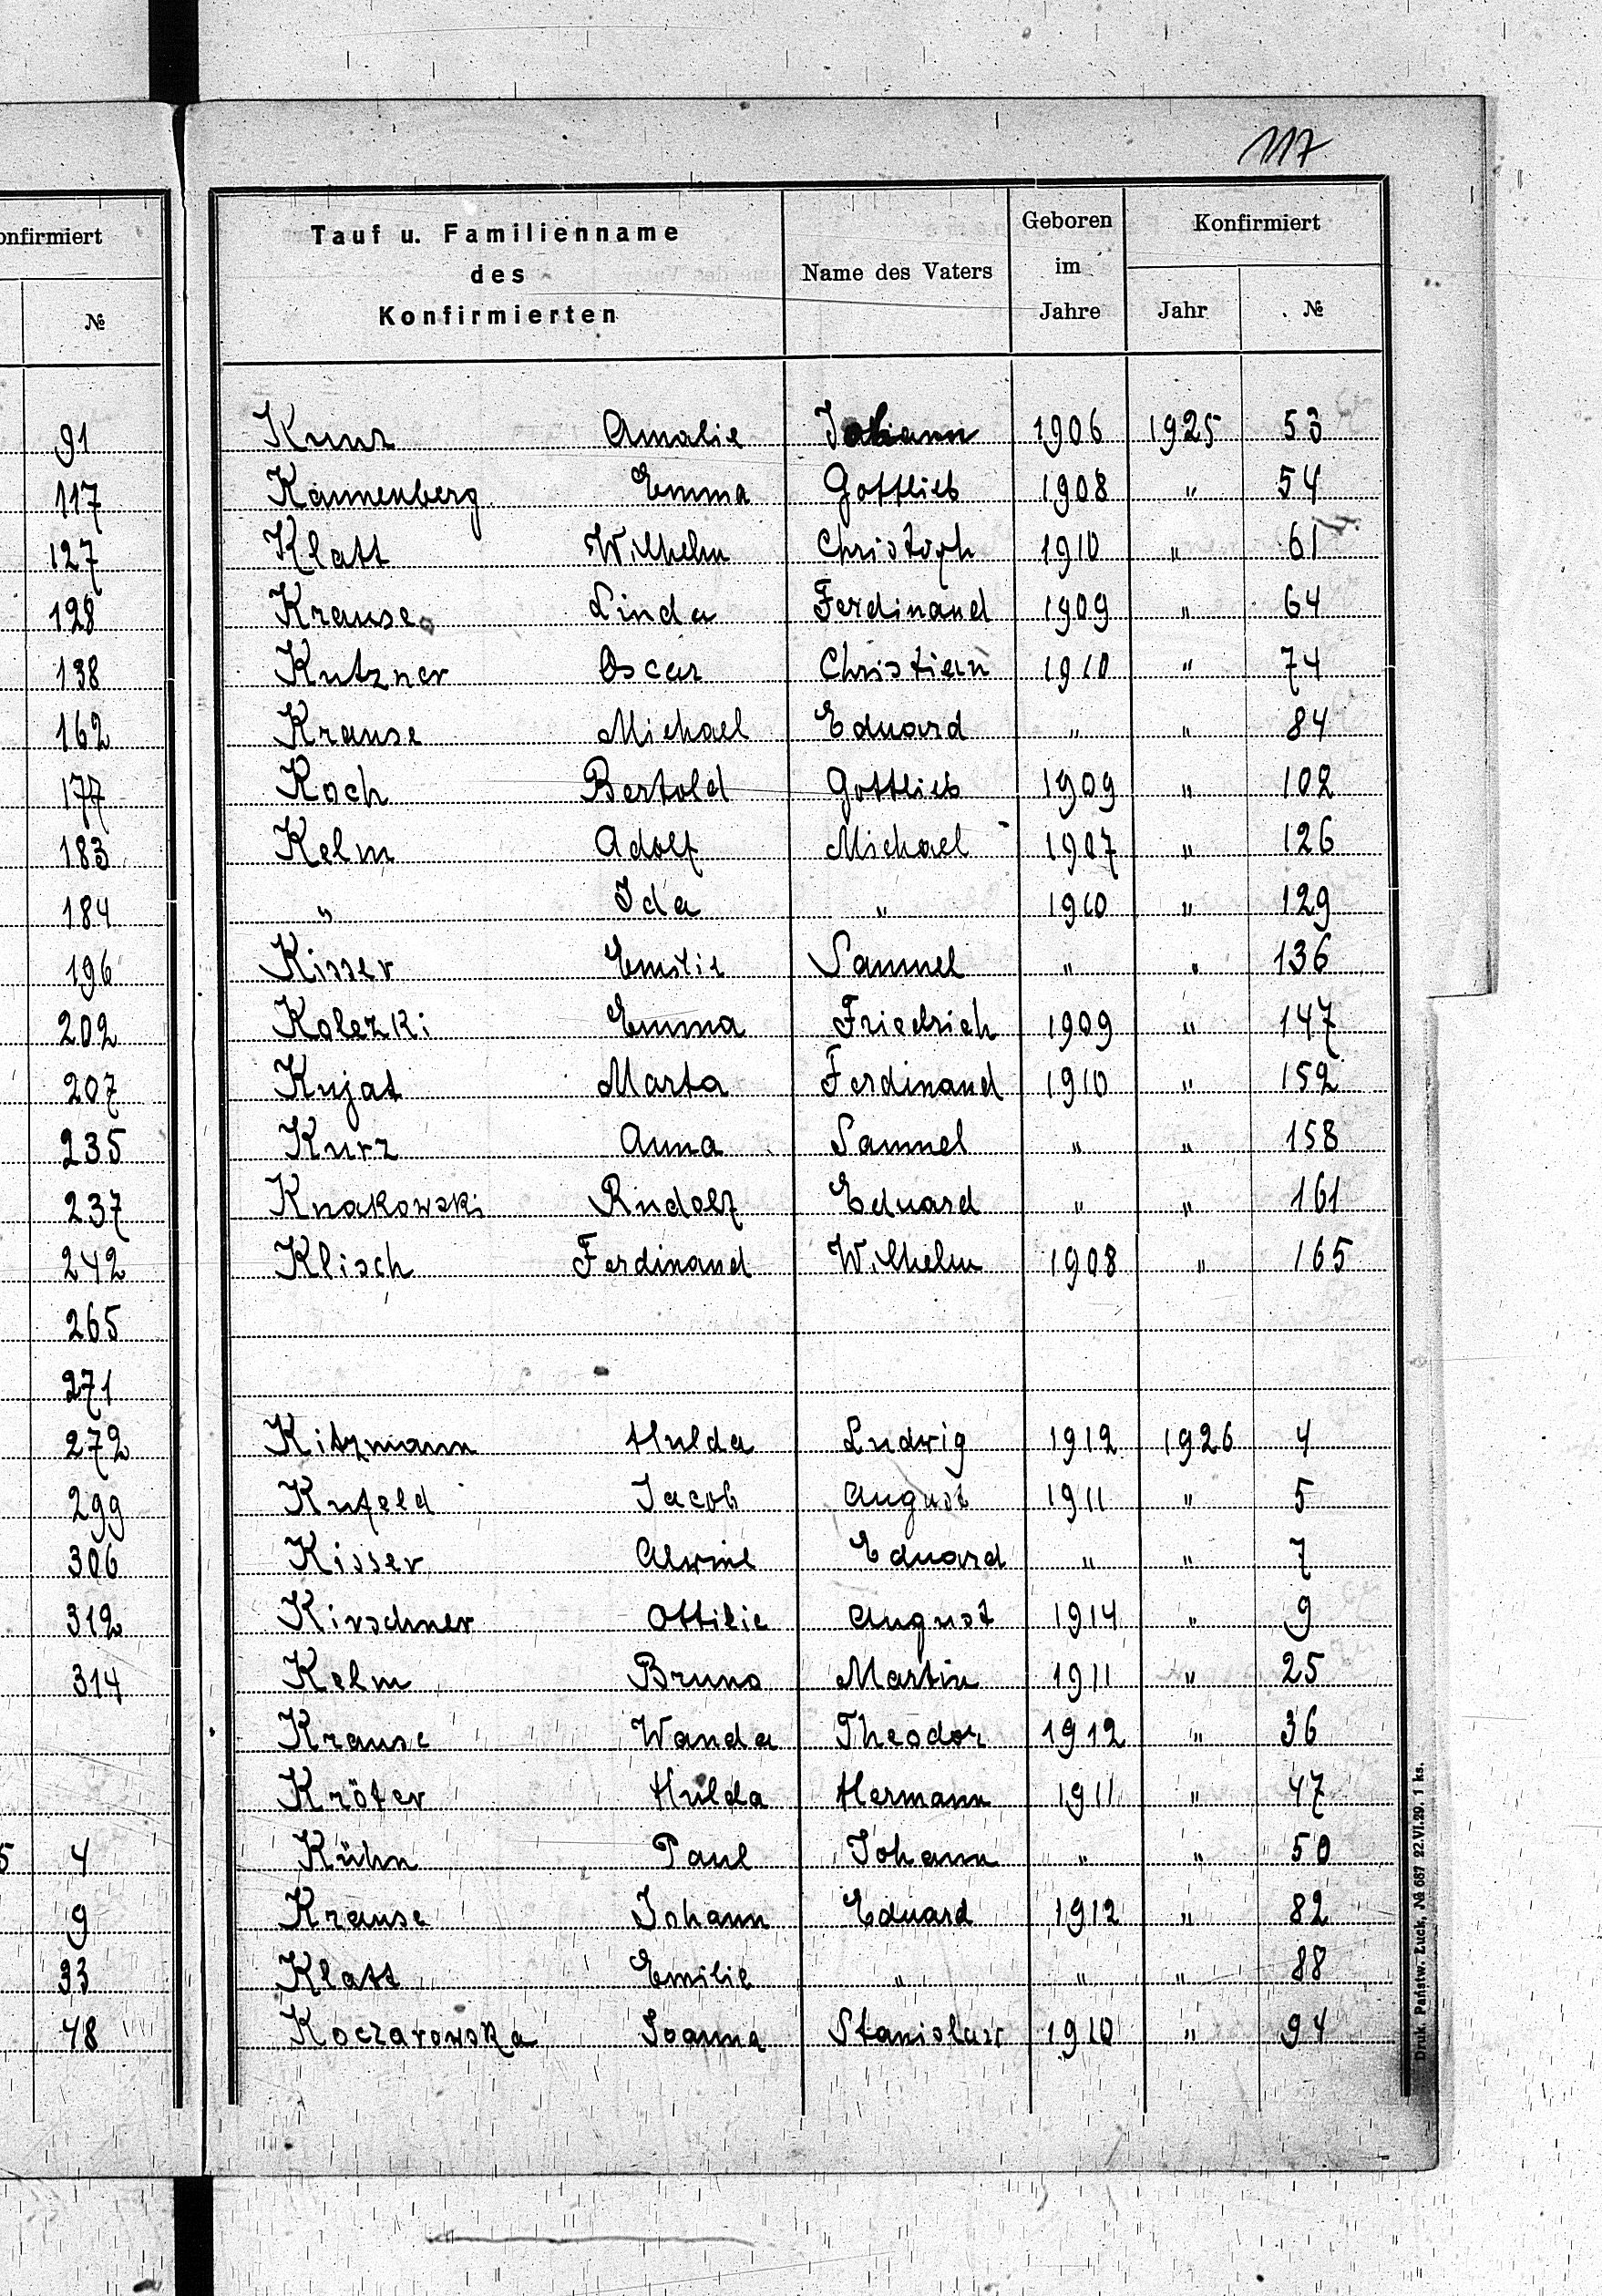 117
onfirmiert
№
91
117
127
128
138
162
177
183
184
196
202
207
235
237
242
265
271
272
299
306
312
314
5 4
9
33
48
Tauf u. Familienname des Konfirmierten | Name des Vaters | Geboren im Jahre | Konfirmiert
Jahr | №
Kunz Amalie Johann 1906 1925 53
Kannenberg Emma Gottlieb 1908 " 54
Klatt Wilhelm Christoph 1910 " 61
Krause Linda Ferdinand 1909 " 64
Kutzner Oscar Christian 1910 " 74
Krause Michael Eduard " " 84
Koch Bertold Gottlieb 1909 " 102
Kelm Adolf Michael 1907 " 126
" Ida " 1910 " 129
Kisser Emilie Samuel " " 136
Kolezki Emma Friedrich 1909 " 147
Kujat Marta Ferdinand 1910 " 152
Kurz Anna Samuel " " 158
Knakowski Rudolf Eduard " " 161
Klisch Ferdinand Wilhelm 1908 " 165
Kitzmann Hulda Ludwig 1912 1926 4
Kufeld Jacob August 1911 " 5
Kisser Alwine Eduard " " 7
Kirschner Ottilie August 1914 " 9
Kelm Bruno Martin 1911 " 25
Krause Wanda Theodor 1912 " 36
Kröter Hulda Hermann 1911 " 47
Kühn Paul Johann " " 50
Krause Johann Eduard 1912 " 82
Klatt Emilie " " " 88
Koczarowska Joanna Stanislaw 1910 " 94
Druk. Państw. Łuck, № 687 22.VI.29. 1 ks.